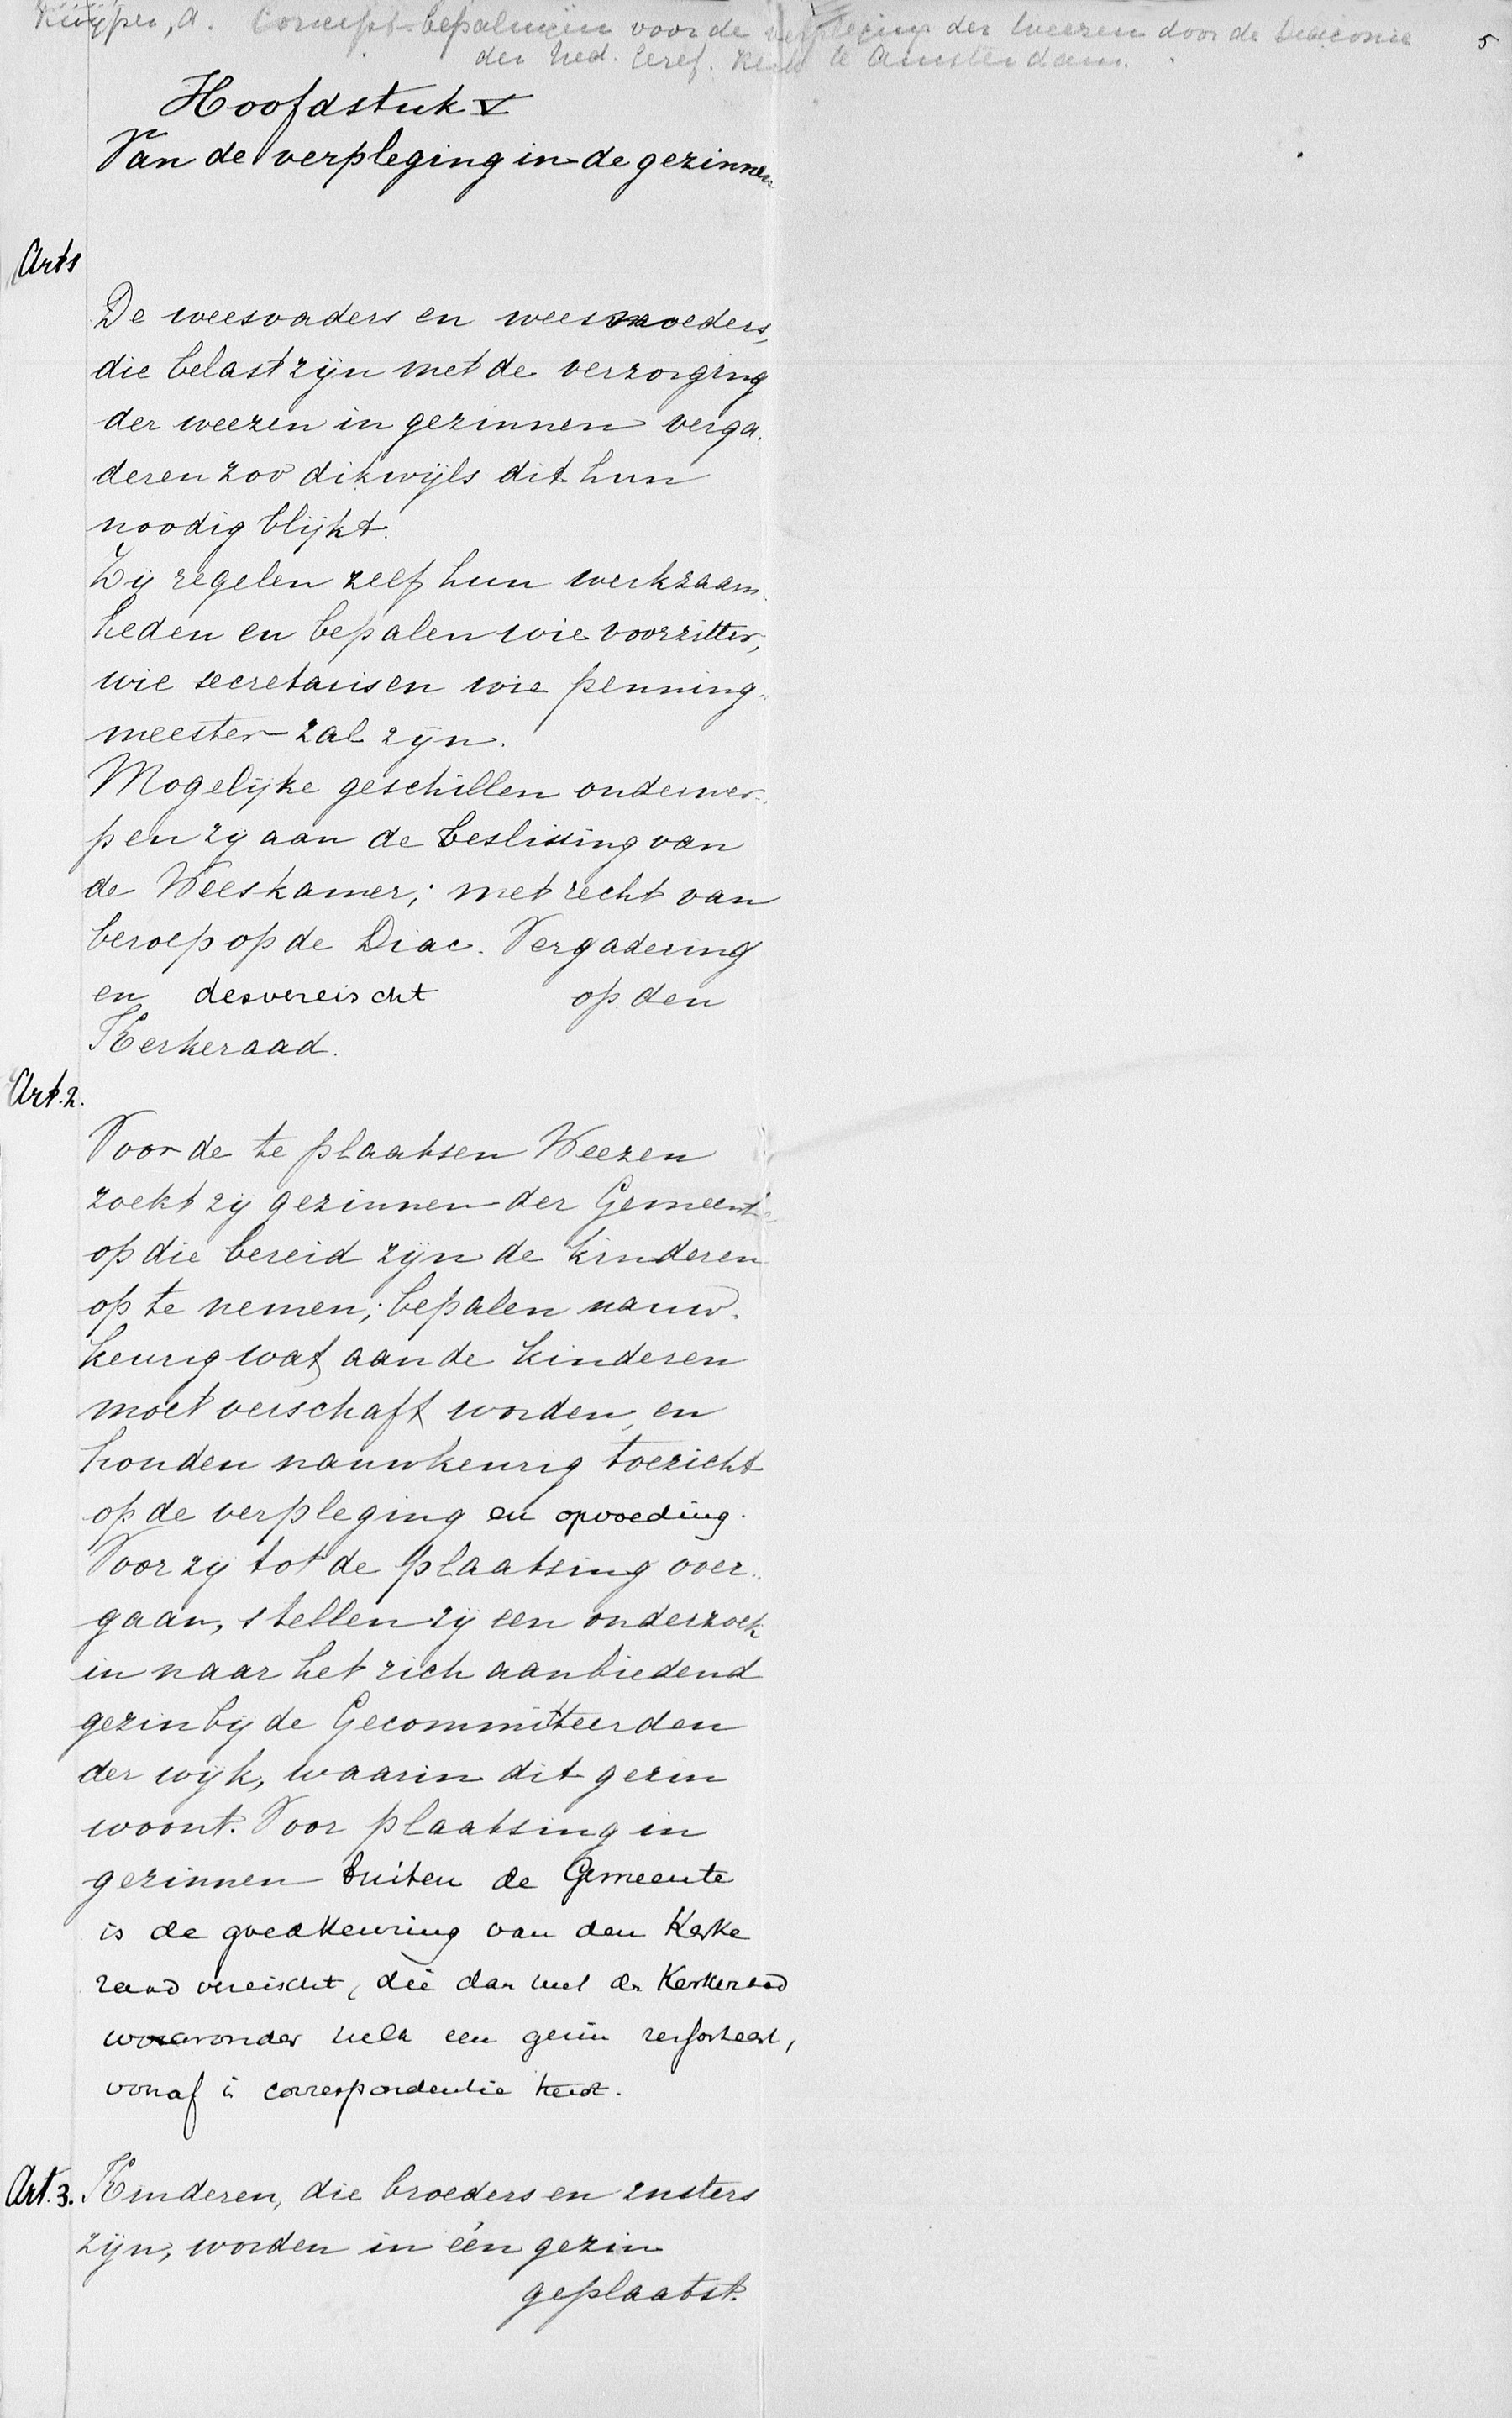 Kuyper, A. Concept-bepalingen voor de verpleging der weezen door de Diaconie
der Ned. Geref. Kerk te Amsterdam.
5
Hoofdstuk V
Van de verpleging in de gezinnen
Art 1
De weesvaders en weesmoeders,
die belast zijn met de verzorging
der weezen in gezinnen verga-
deren zoo dikwijls dit hun
noodig blijkt.
Zij regelen zelf hun werkzaam-
heden en bepalen wie voorzitter,
wie secretaris en wie penning-
meester zal zijn.
Mogelijke geschillen onderwer-
pen zij aan de beslissing van
de Weeskamer; met recht van
beroep op de Diac. Vergadering
en desvereischt op den
Kerkeraad.
Art. 2.
Voor de te plaatsen Weezen
zoekt zij gezinnen der Gemeente
op die bereid zijn de kinderen
op te nemen; bepalen nauw-
keurig wat aan de kinderen
moet verschaft worden, en
houden nauwkeurig toezicht
op de verpleging en opvoeding.
Voor zij tot de plaatsing over-
gaan, stellen zij een onderzoek
in naar het zich aanbiedend
gezin bij de Gecommitteerden
der wijk, waarin dit gezin
woont. Voor plaatsing in
gezinnen buiten de Gemeente
is de goedkeuring van den Kerke
raad vereischt, die dan met den Kerkeraad
waaronder zulk een gezin ressorteert,
vooraf in correspondentie treedt.
Art. 3. Kinderen, die broeders en zusters
zijn, worden in één gezin
geplaatst.